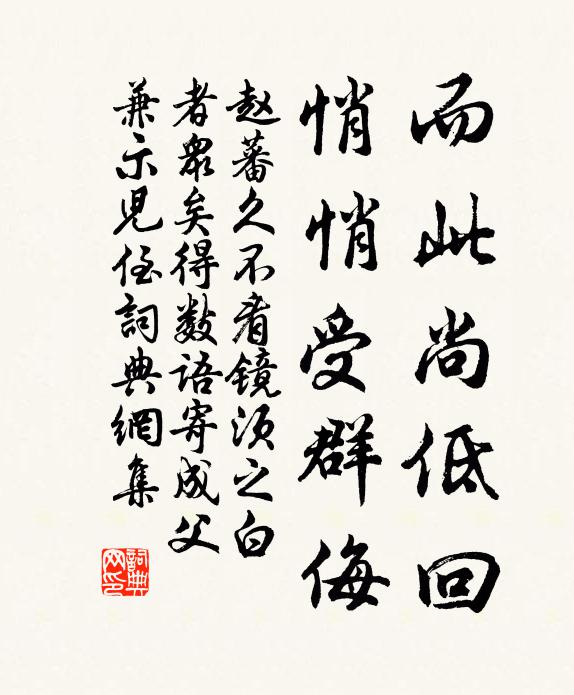 而此尚低回
悄悄受群侮
赵蕃久不看镜须之白
者众矣得数语寄成父
兼示児侄詞典網集
詞典
网印